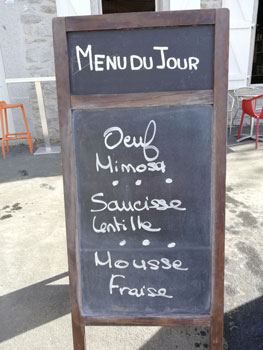 MENU DU JOUR
Oeuf
Mimosa
. . .
Saucisse
Lentille
. . .
Mousse
Fraise